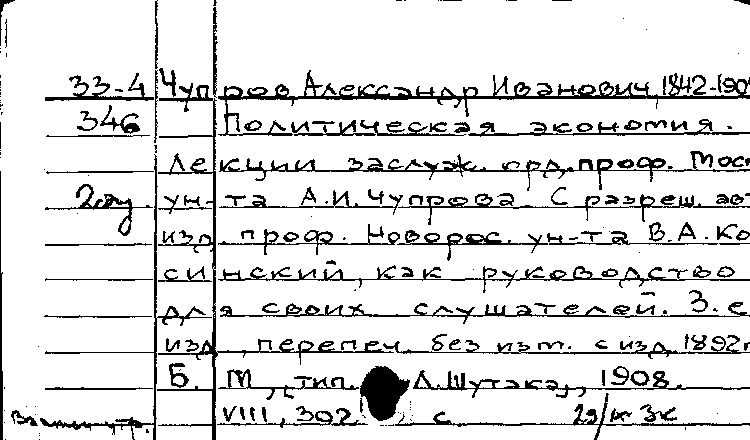 33-4 Чупров, Александр Иванович, 1842-190
346 Политическая экономия.
Лекции заслуж. орд. проф. Мос
2 экз. ун-та А.И. Чупрова. С разреш. авт
изд. проф. Новорос. ун-та В.А. Ко
синский, как руководство
для своих слушателей. 3-е
изд., перепеч. без изм. с изд. 1892г
Б. М., [тип. Л. Шутака], 1908.
VIII, 302 с.